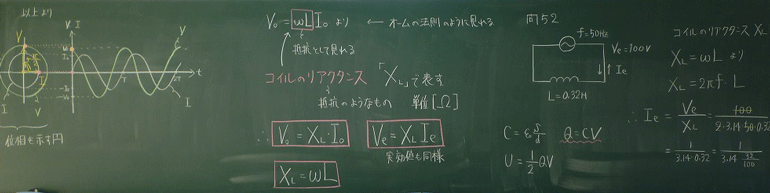 以上より
V I
V₀
I₀
t
V
I
I
V
位相を示す円
V₀ = ωL I₀ より ← オームの法則のように見れる
抵抗として見れる
コイルのリアクタンス 「X_L」で表す
抵抗のようなもの 単位[Ω]
∴ V₀ = X_L・I₀
Ve = X_L Ie
実効値も同様
X_L = ωL
問52
f=50Hz
Ve=100V
↑ Ie
L=0.32H
C = ε S/d Q=CV
U = 1/2 QV
コイルのリアクタンス X_L
X_L = ωL より
X_L = 2πf・L
∴ Ie = Ve/X_L = 100/2・3.14・50・0.32
= 1/3.14・0.32 = 1/3.14・32/100